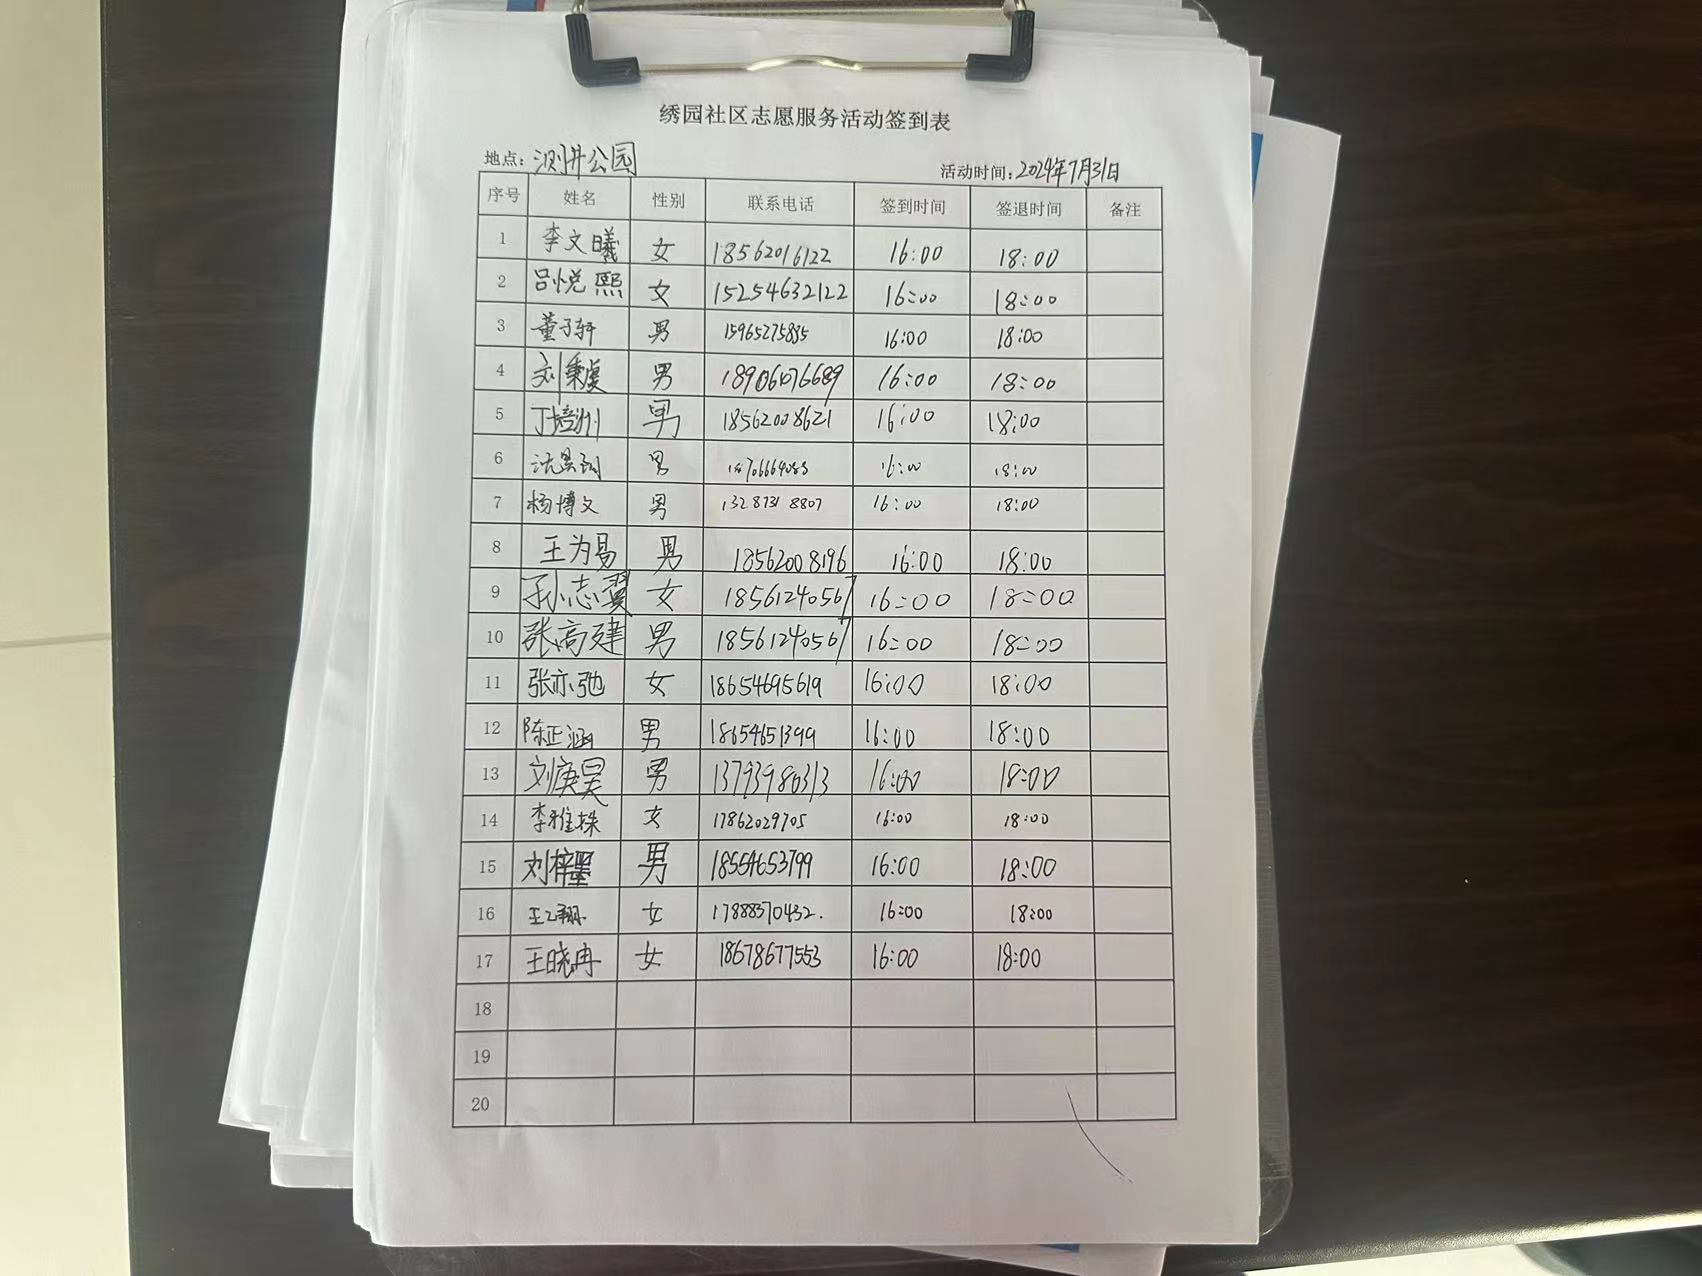 绣园社区志愿服务活动签到表
地点：测井公园 活动时间：2024年7月31日
序号 姓名 性别 联系电话 签到时间 签退时间 备注
1 李文曦 女 18562016122 16:00 18:00
2 吕悦熙 女 15254632122 16:00 18:00
3 董子轩 男 15965275835 16:00 18:00
4 刘秉虔 男 18906076689 16:00 18:00
5 丁培洲 男 18562008621 16:00 18:00
6 男 16:00 18:00
7 杨博文 男 13287318807 16:00 18:00
8 王为易 男 18562008196 16:00 18:00
9 孙志翼 女 18561240567 16:00 18:00
10 张高建 男 18561240567 16:00 18:00
11 张亦弛 女 18654695619 16:00 18:00
12 陈正涵 男 18654651399 16:00 18:00
13 刘庚昊 男 13793980313 16:00 18:00
14 李雅姝 女 17862029705 16:00 18:00
15 刘梓墨 男 18554653799 16:00 18:00
16 女 17888370432. 16:00 18:00
17 王晓冉 女 18678677553 16:00 18:00
18
19
20